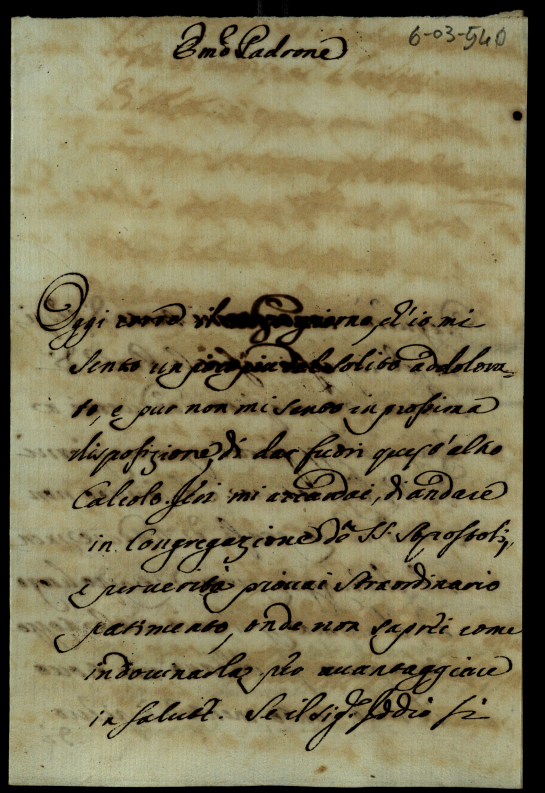 6-03-540
Em̃o Padrone
Oggi corre il giorno, ch'io mi
sento un poco più del solito addolora=
to, e pur non mi sento in prossima
disposizione di dar fuori quest'altro
Calcolo. Jeri mi azzardai, di andare
in Congregazione de SS. Apostoli,
e per verità provai straordinario
patimento, onde non saprei come
indovinarla per avantaggiare
in salute. Se il Sig.r Iddio si